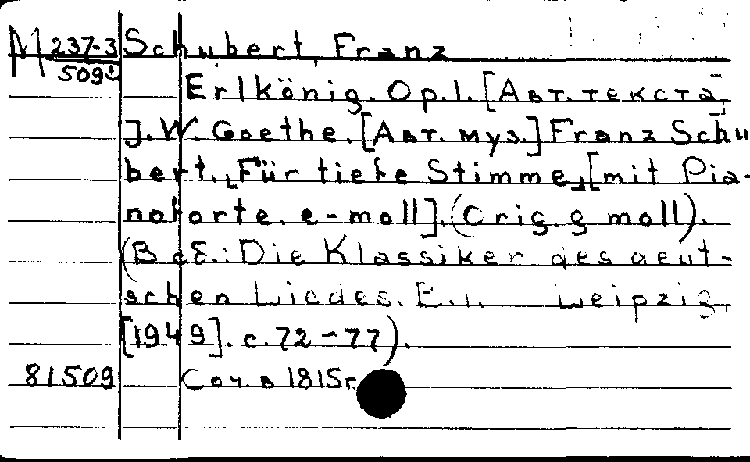 M 237-3 Schubert, Franz
509
Erlkönig. Op.1. [Авт. текста]
J. W. Goethe. [Авт. муз.] Franz Schu
bert. „Für tiefe Stimme„ [mit Pia-
noforte. e-moll]. (Orig. g moll).
(В сб.: Die Klassiker des deut-
schen Liedes. Leipzig,
[1949]. с. 72-77).
81509 Соч. в 1815г